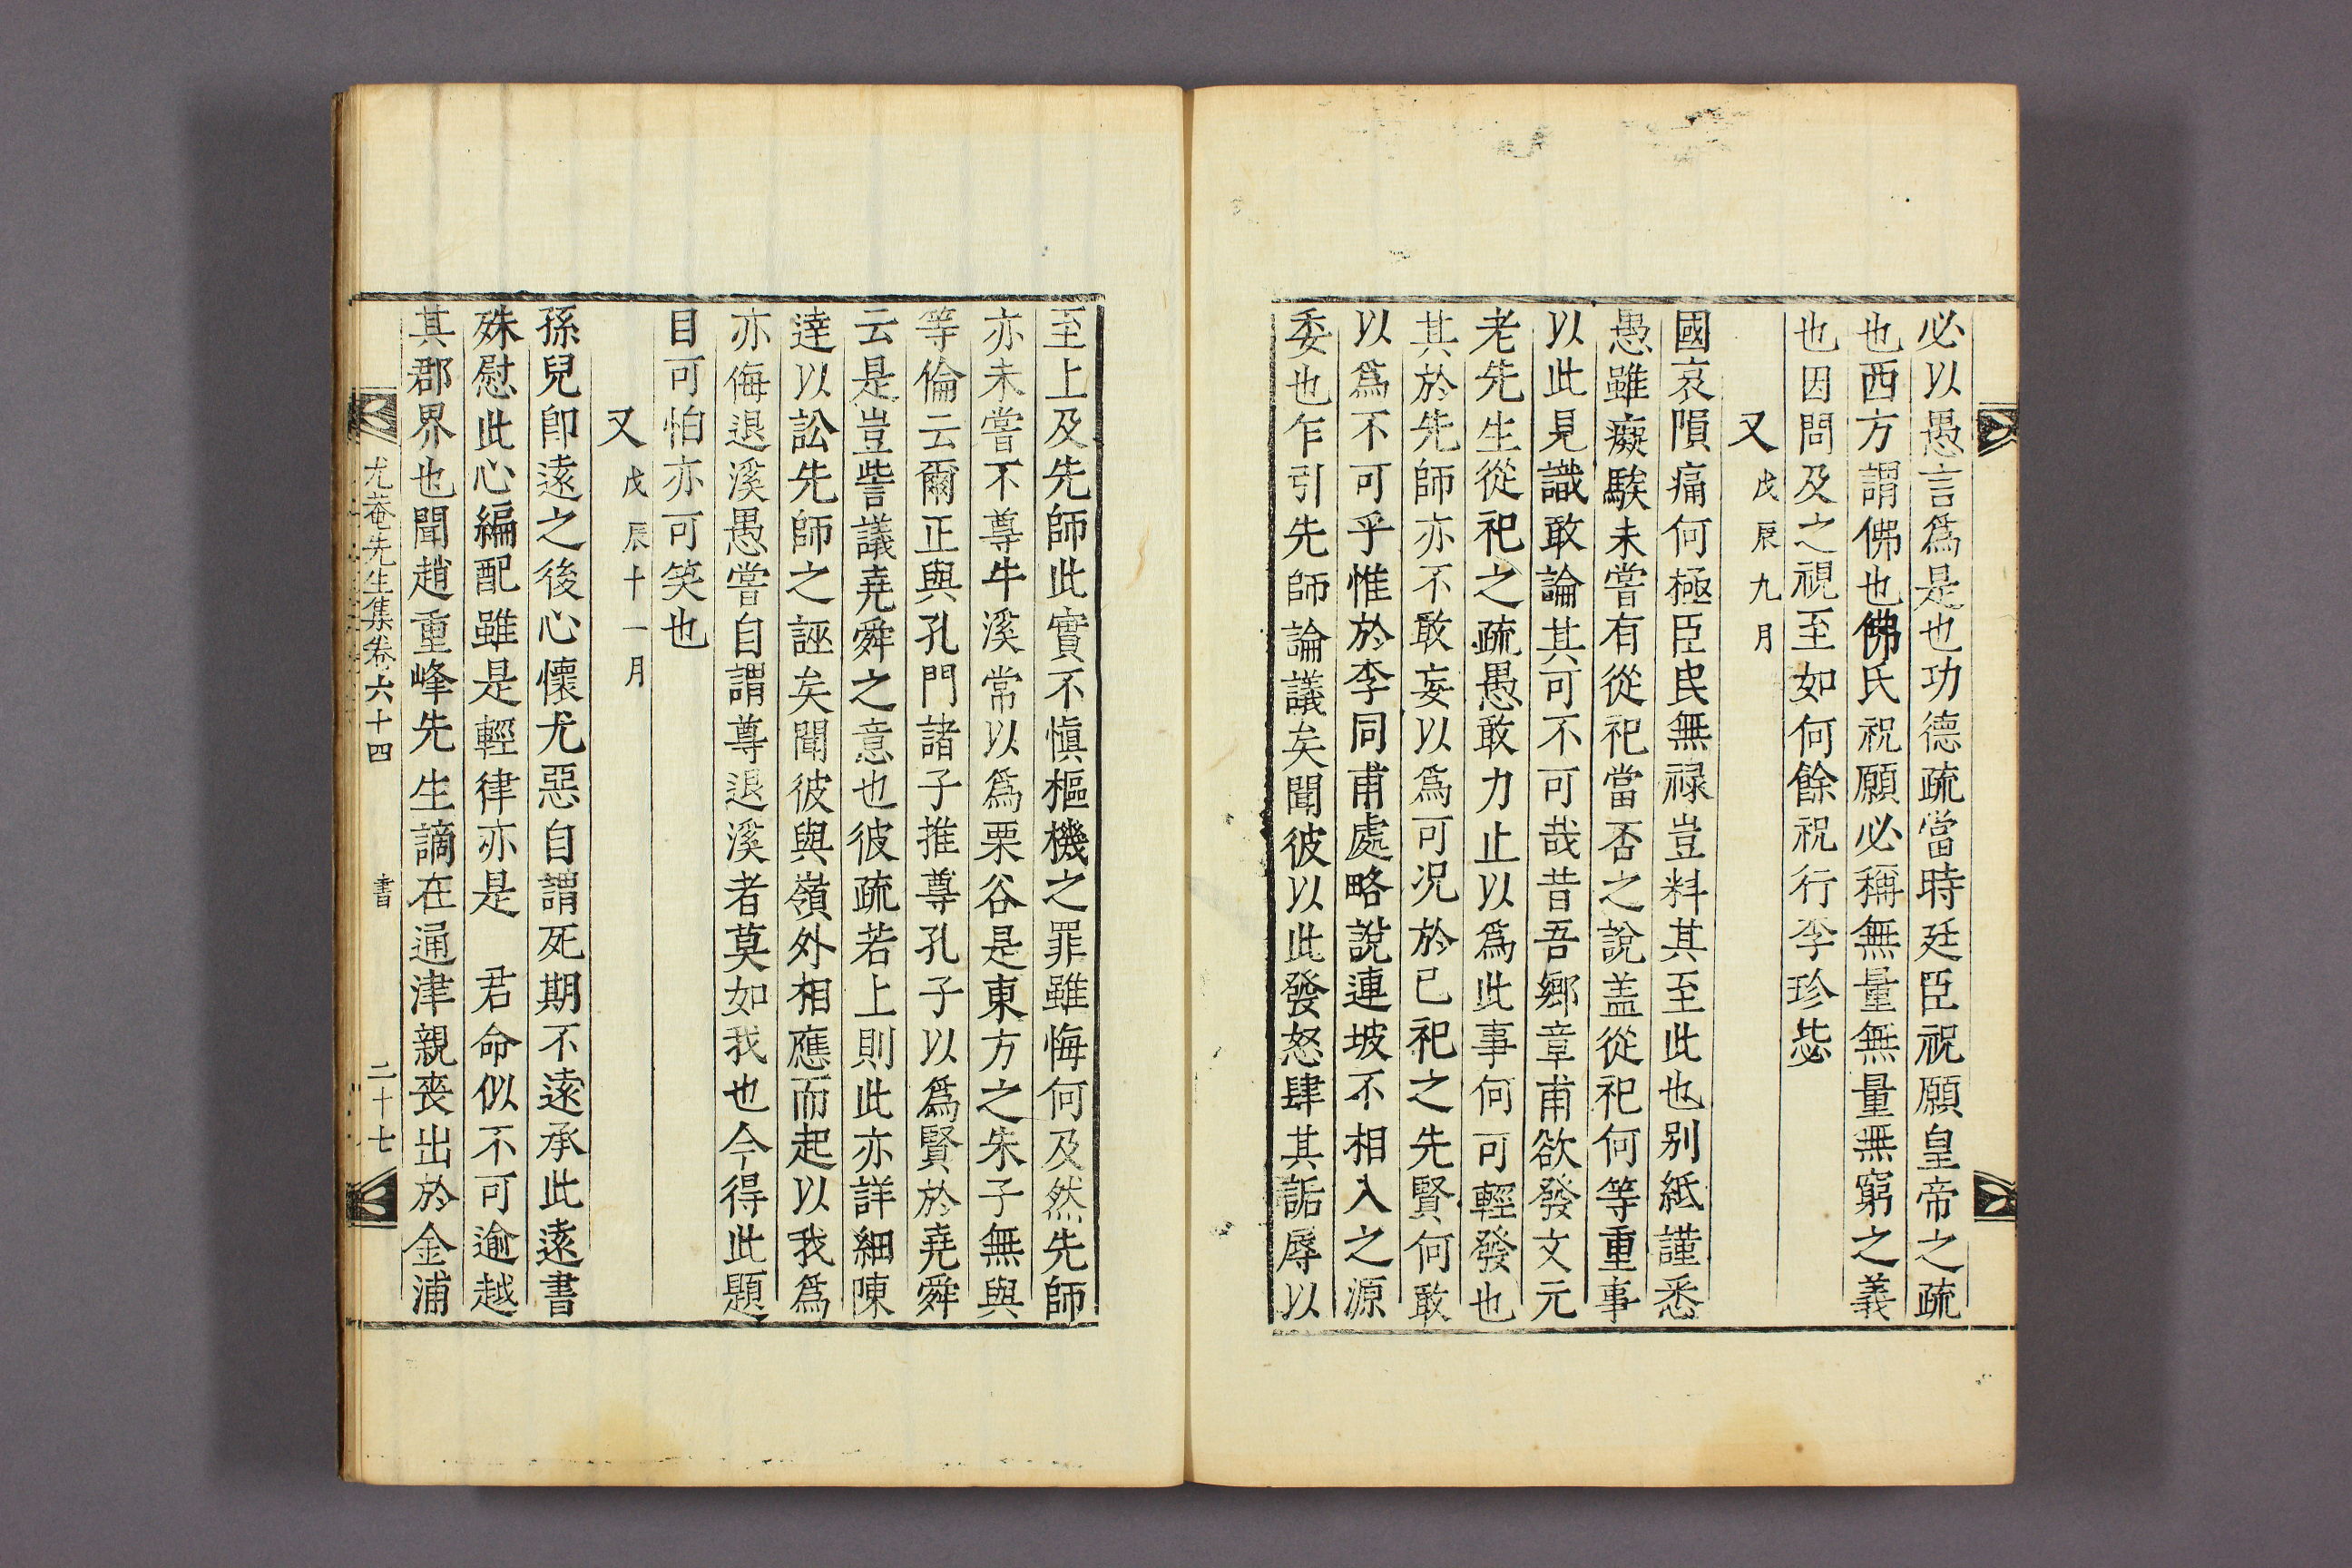 必以愚言爲是也功德疏當時廷臣祝願皇帝之疏
也西方謂佛也佛氏祝願必稱無量無量無窮之義
也因問及之視至如何餘祝行李珍毖
又戊辰九月
國哀隕痛何極臣民無祿豈料其至此也別紙謹悉
愚雖癡騃未嘗有從祀當否之說盖從祀何等重事
以此見識敢論其可不可哉昔吾鄉章甫欲發文元
老先生從祀之疏愚敢力止以爲此事何可輕發也
其於先師亦不敢妄以爲可況於已祀之先賢何敢
以爲不可乎惟於李同甫處略說連坡不相入之源
委也乍引先師論議矣聞彼以此發怒肆其詬辱以
至上及先師此實不愼樞機之罪雖悔何及然先師
亦未嘗不尊牛溪常以爲栗谷是東方之朱子無與
等倫云爾正與孔門諸子推尊孔子以爲賢於堯舜
云是豈訾議堯舜之意也彼疏若上則此亦詳細陳
達以訟先師之誣矣聞彼與嶺外相應而起以我爲
亦侮退溪愚嘗自謂尊退溪者莫如我也今得此題
目可怕亦可笑也
又戊辰十一月
孫兒卽遠之後心懷尤惡自謂死期不遠承此遠書
殊慰此心編配雖是輕律亦是　君命似不可逾越
其郡界也聞趙重峰先生謫在通津親喪出於金浦
尤菴先生集卷六十四　書　二十七